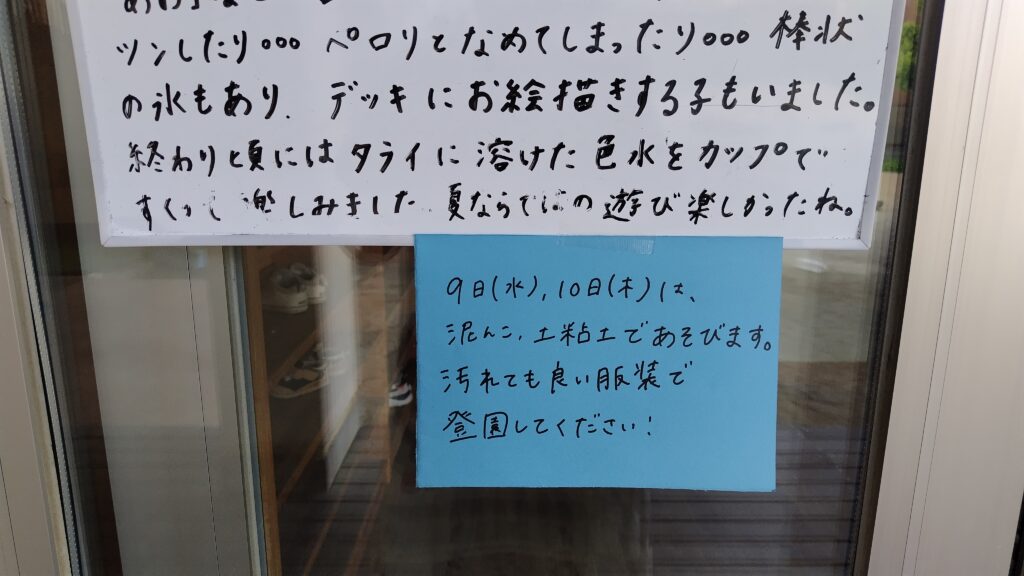 ツンしたり。。。 ペロリとなめてしまったり。。。 棒状
の氷もあり、デッキにお絵描きする子もいました。
終わり頃にはタライに溶けた色水をカップで
すくって楽しみました 夏ならではの遊び楽しかったね。
9日(水)、10日(木)は、
泥んこ、土粘土であそびます。
汚れても良い服装で
登園してください!